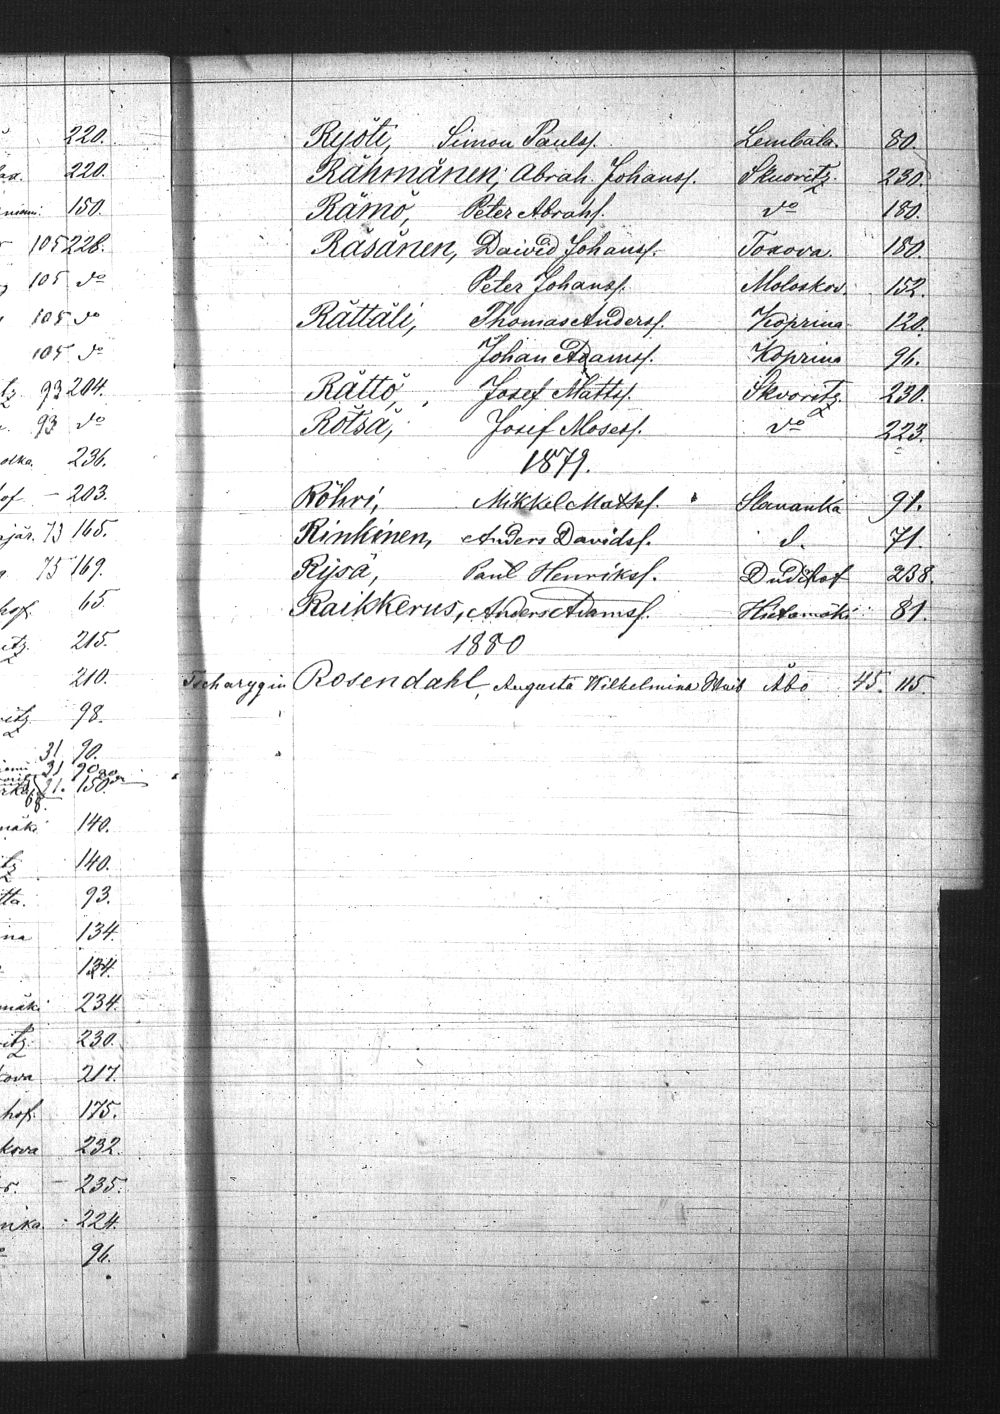 220.
220.
150.
105 228.
105 do
105 do
105 do
93 204.
93 do
236.
203.
73 165.
75 169.
hof. 65.
215.
210.
98.
31 90.
31 90
21. 150.
mäki 140.
140.
93.
134.
134.
mäki 234.
230.
kova 217.
hof. 175.
kova 232.
235.
224.
96.
Ryöti, Simon Paulss. Lembala. 80.
Rähmänen, Abrah. Johanss. Skuoritz. 230.
Rämö, Peter Abrahs. do 180.
Räsänen, Dawid Johanss. Toxova. 180.
Peter Johanss. Moloskov. 152.
Rättäli, Thomas Anderss. Koprina 120.
Johan Adamss. Koprina 96.
Rättö, Josef Mattss. Skvoritz. 230.
Rötsä, Josif Mosess. do 223.
1879.
Röhri, Mikkel Mattss. Slavanka 91.
Rinkinen, Anders Davidss. d. 71.
Rysä, Paul Henrikss. Dudehof 238.
Raikkerus, Anders Adamss. Hietamäki 81.
1880
Tscharygin Rosendahl, Augusta Wilhelmina Åbo 45. 115.